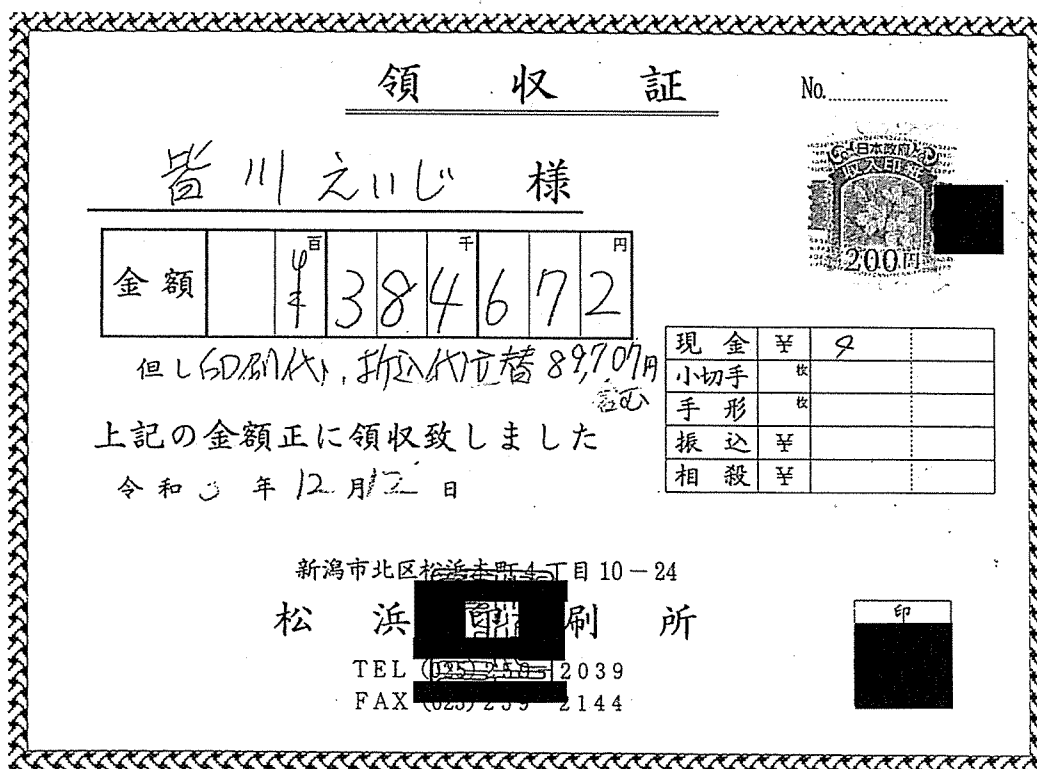 領収証
No.
日本政府
収入印紙
200円
皆川えいじ 様
金額 百 千 円
¥384672
但し印刷代、折込代立替89,707円
上記の金額正に領収致しました
令和3年12月12日
現金 ¥
小切手 枚
手形 枚
振込 ¥
相殺 ¥
新潟市北区松浜本町4丁目10-24
松浜印刷所
TEL (025) 2039
FAX (025) 259 2144
印